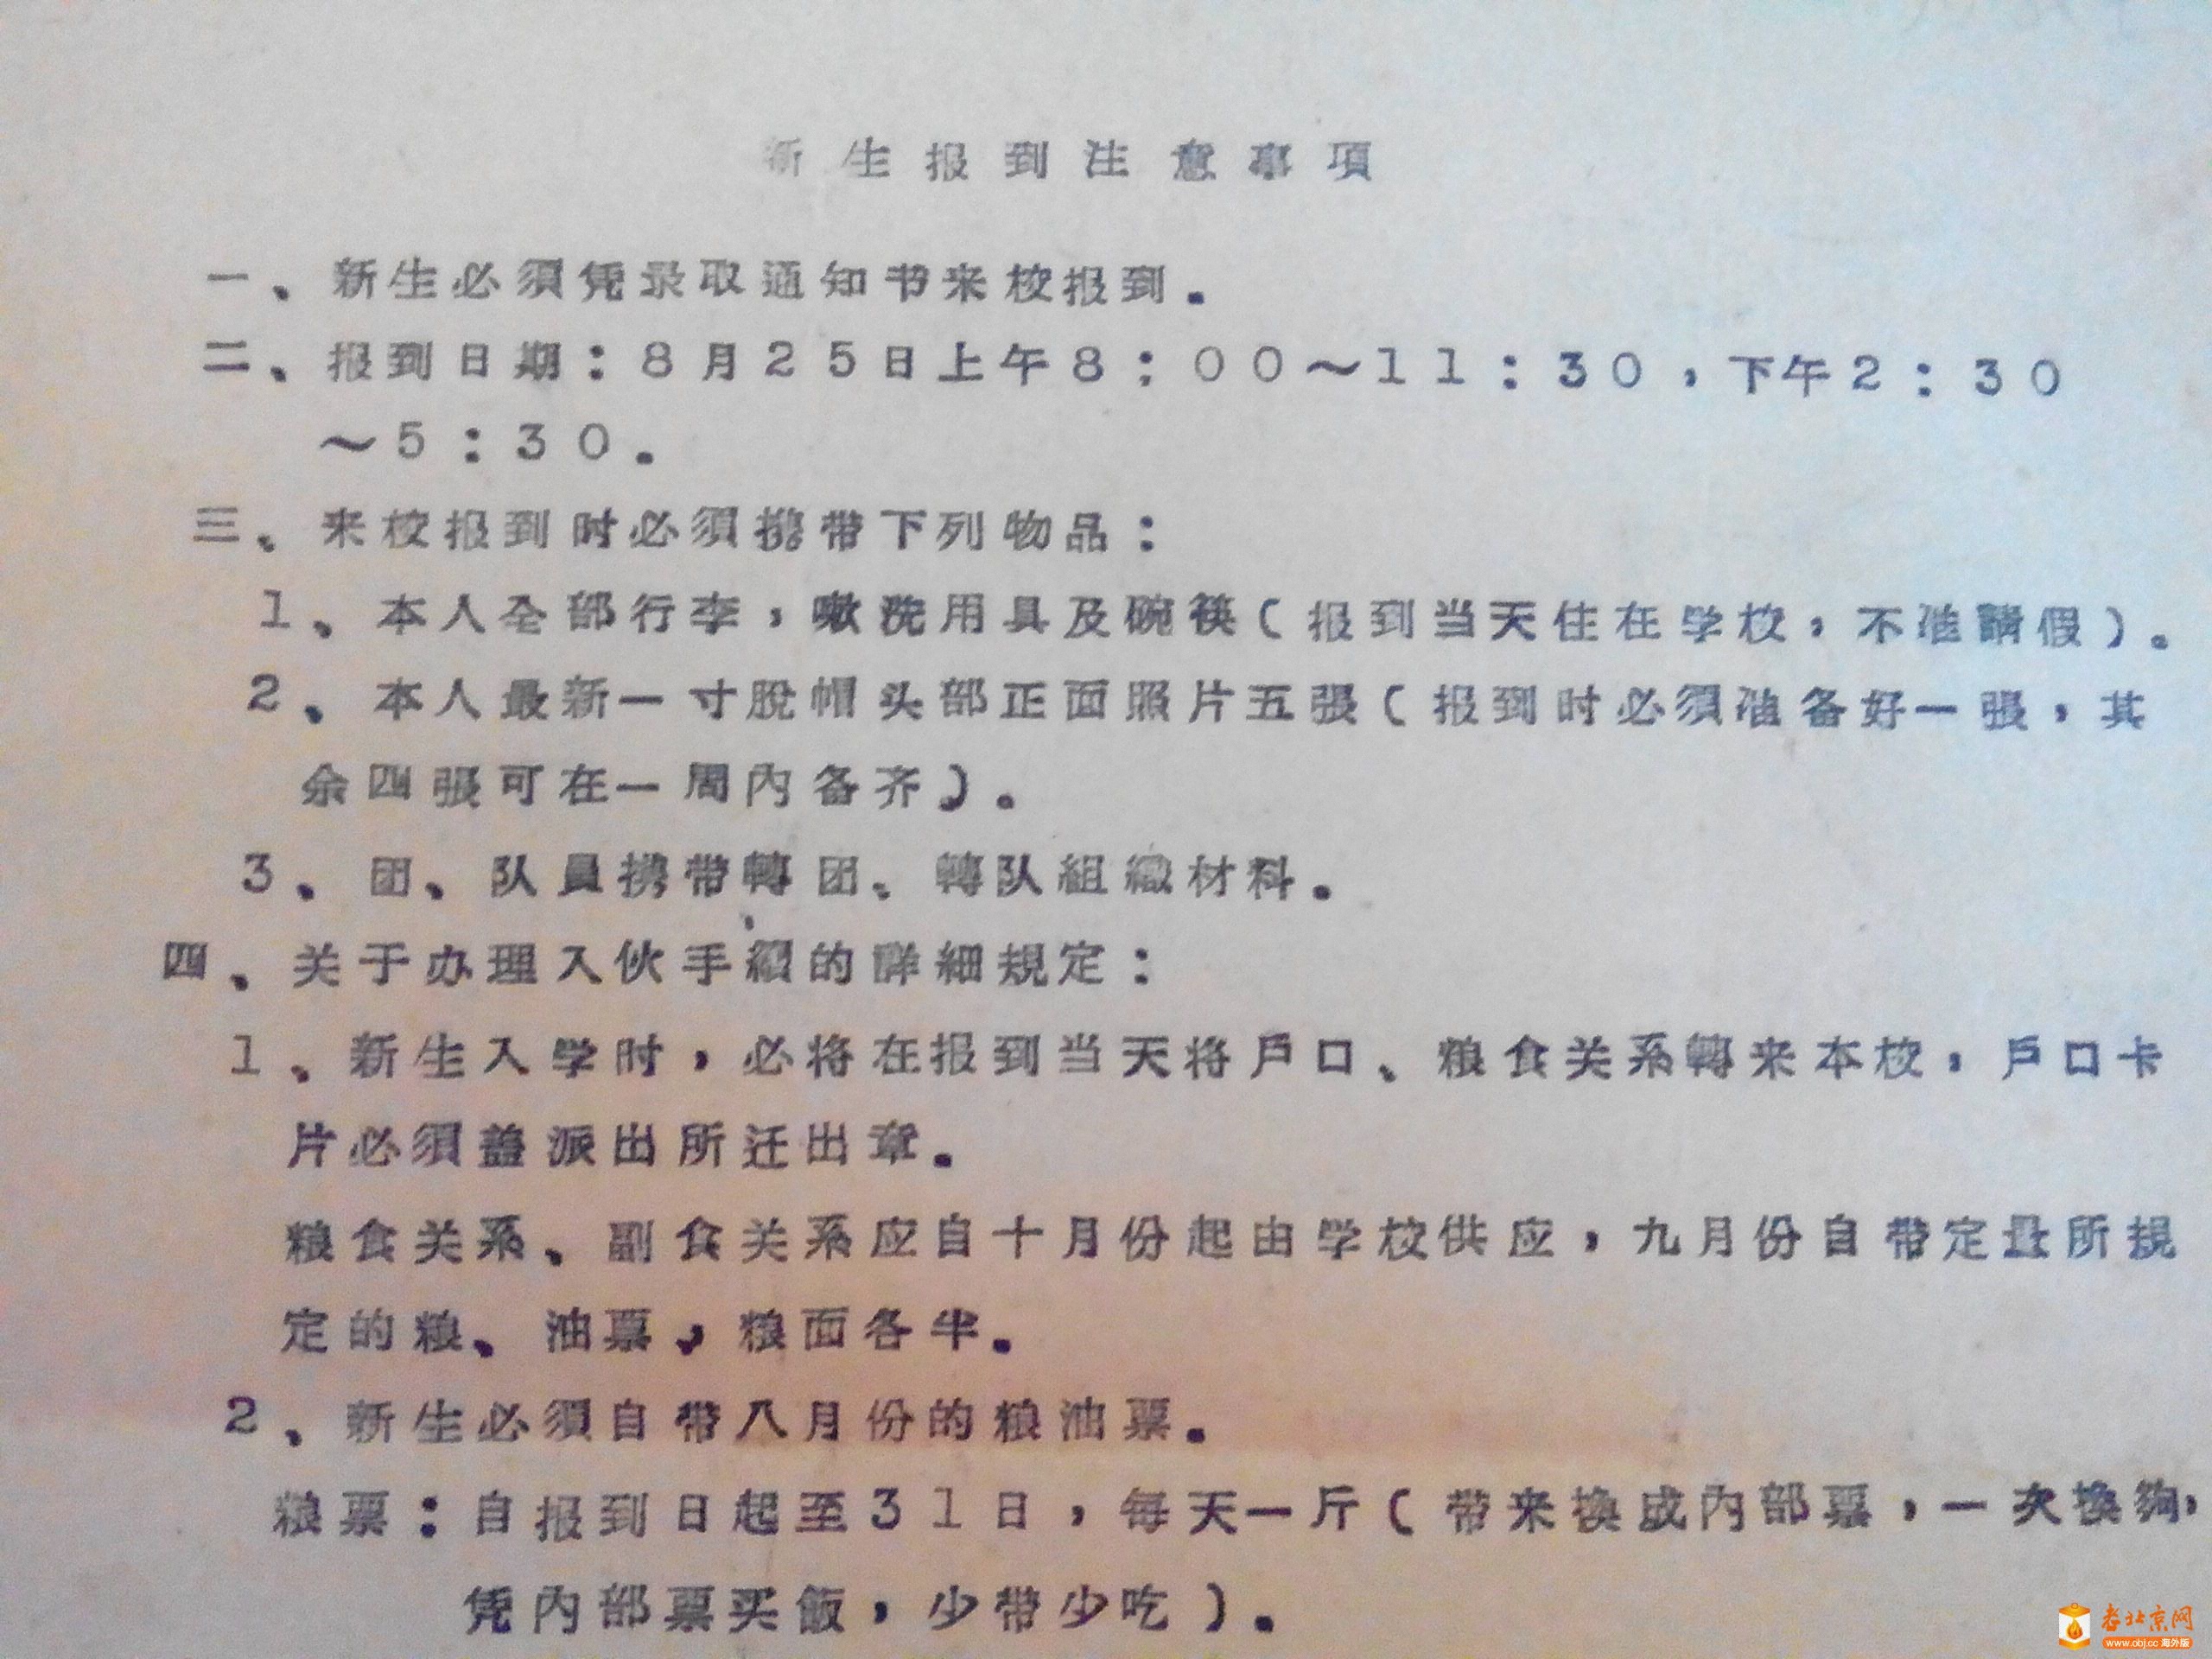 新生报到注意事項
一、新生必須凭录取通知书来校报到。
二、报到日期：8月25日上午8：00～11：30，下午2：30
～5：30。
三、来校报到时必須携带下列物品：
1、本人全部行李，嗽洗用具及碗筷（报到当天住在学校，不准請假）。
2、本人最新一寸脫帽头部正面照片五張（报到时必須准备好一張，其
余四張可在一周內备齐）。
3、团、队員携带轉团、轉队組織材料。
四、关于办理入伙手續的詳細規定：
1、新生入学时，必将在报到当天将戶口、粮食关系轉来本校，戶口卡
片必須蓋派出所迁出章。
粮食关系、副食关系应自十月份起由学校供应，九月份自带定量所規
定的粮、油票，粮面各半。
2、新生必須自带八月份的粮油票。
粮票：自报到日起至31日，每天一斤（带来換成內部票，一次換夠，
凭內部票买飯，少带少吃）。
老北京网
www.obj.cc 海外版